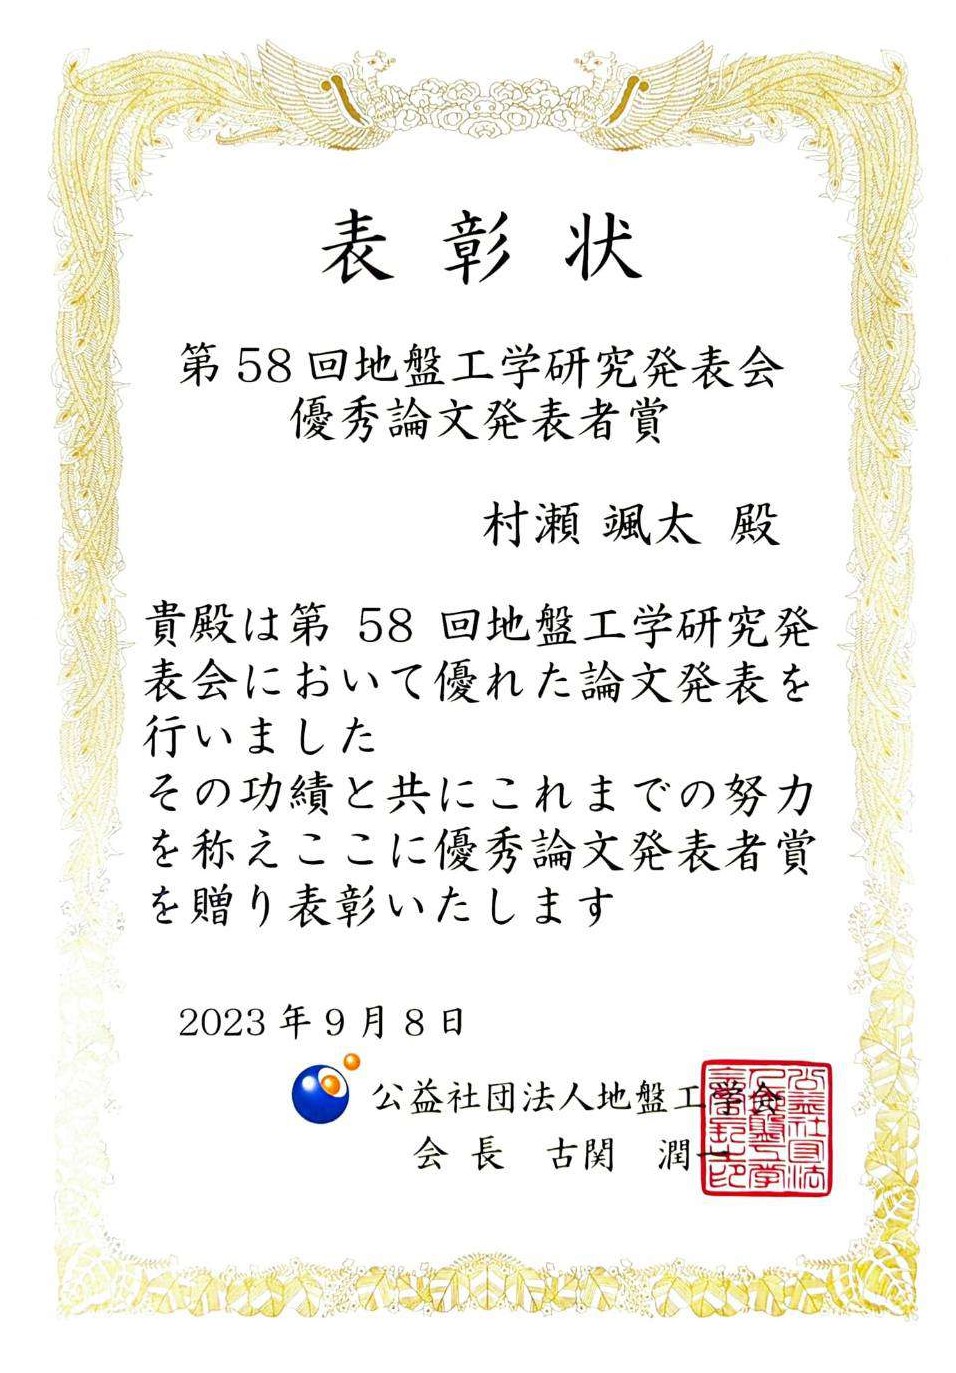 表彰状
第58回地盤工学研究発表会
優秀論文発表者賞
村瀬 颯太 殿
貴殿は第 58 回地盤工学研究発
表会において優れた論文発表を
行いました
その功績と共にこれまでの努力
を称えここに優秀論文発表者賞
を贈り表彰いたします
2023年9月8日
公益社団法人地盤工学会
会長 古関 潤一